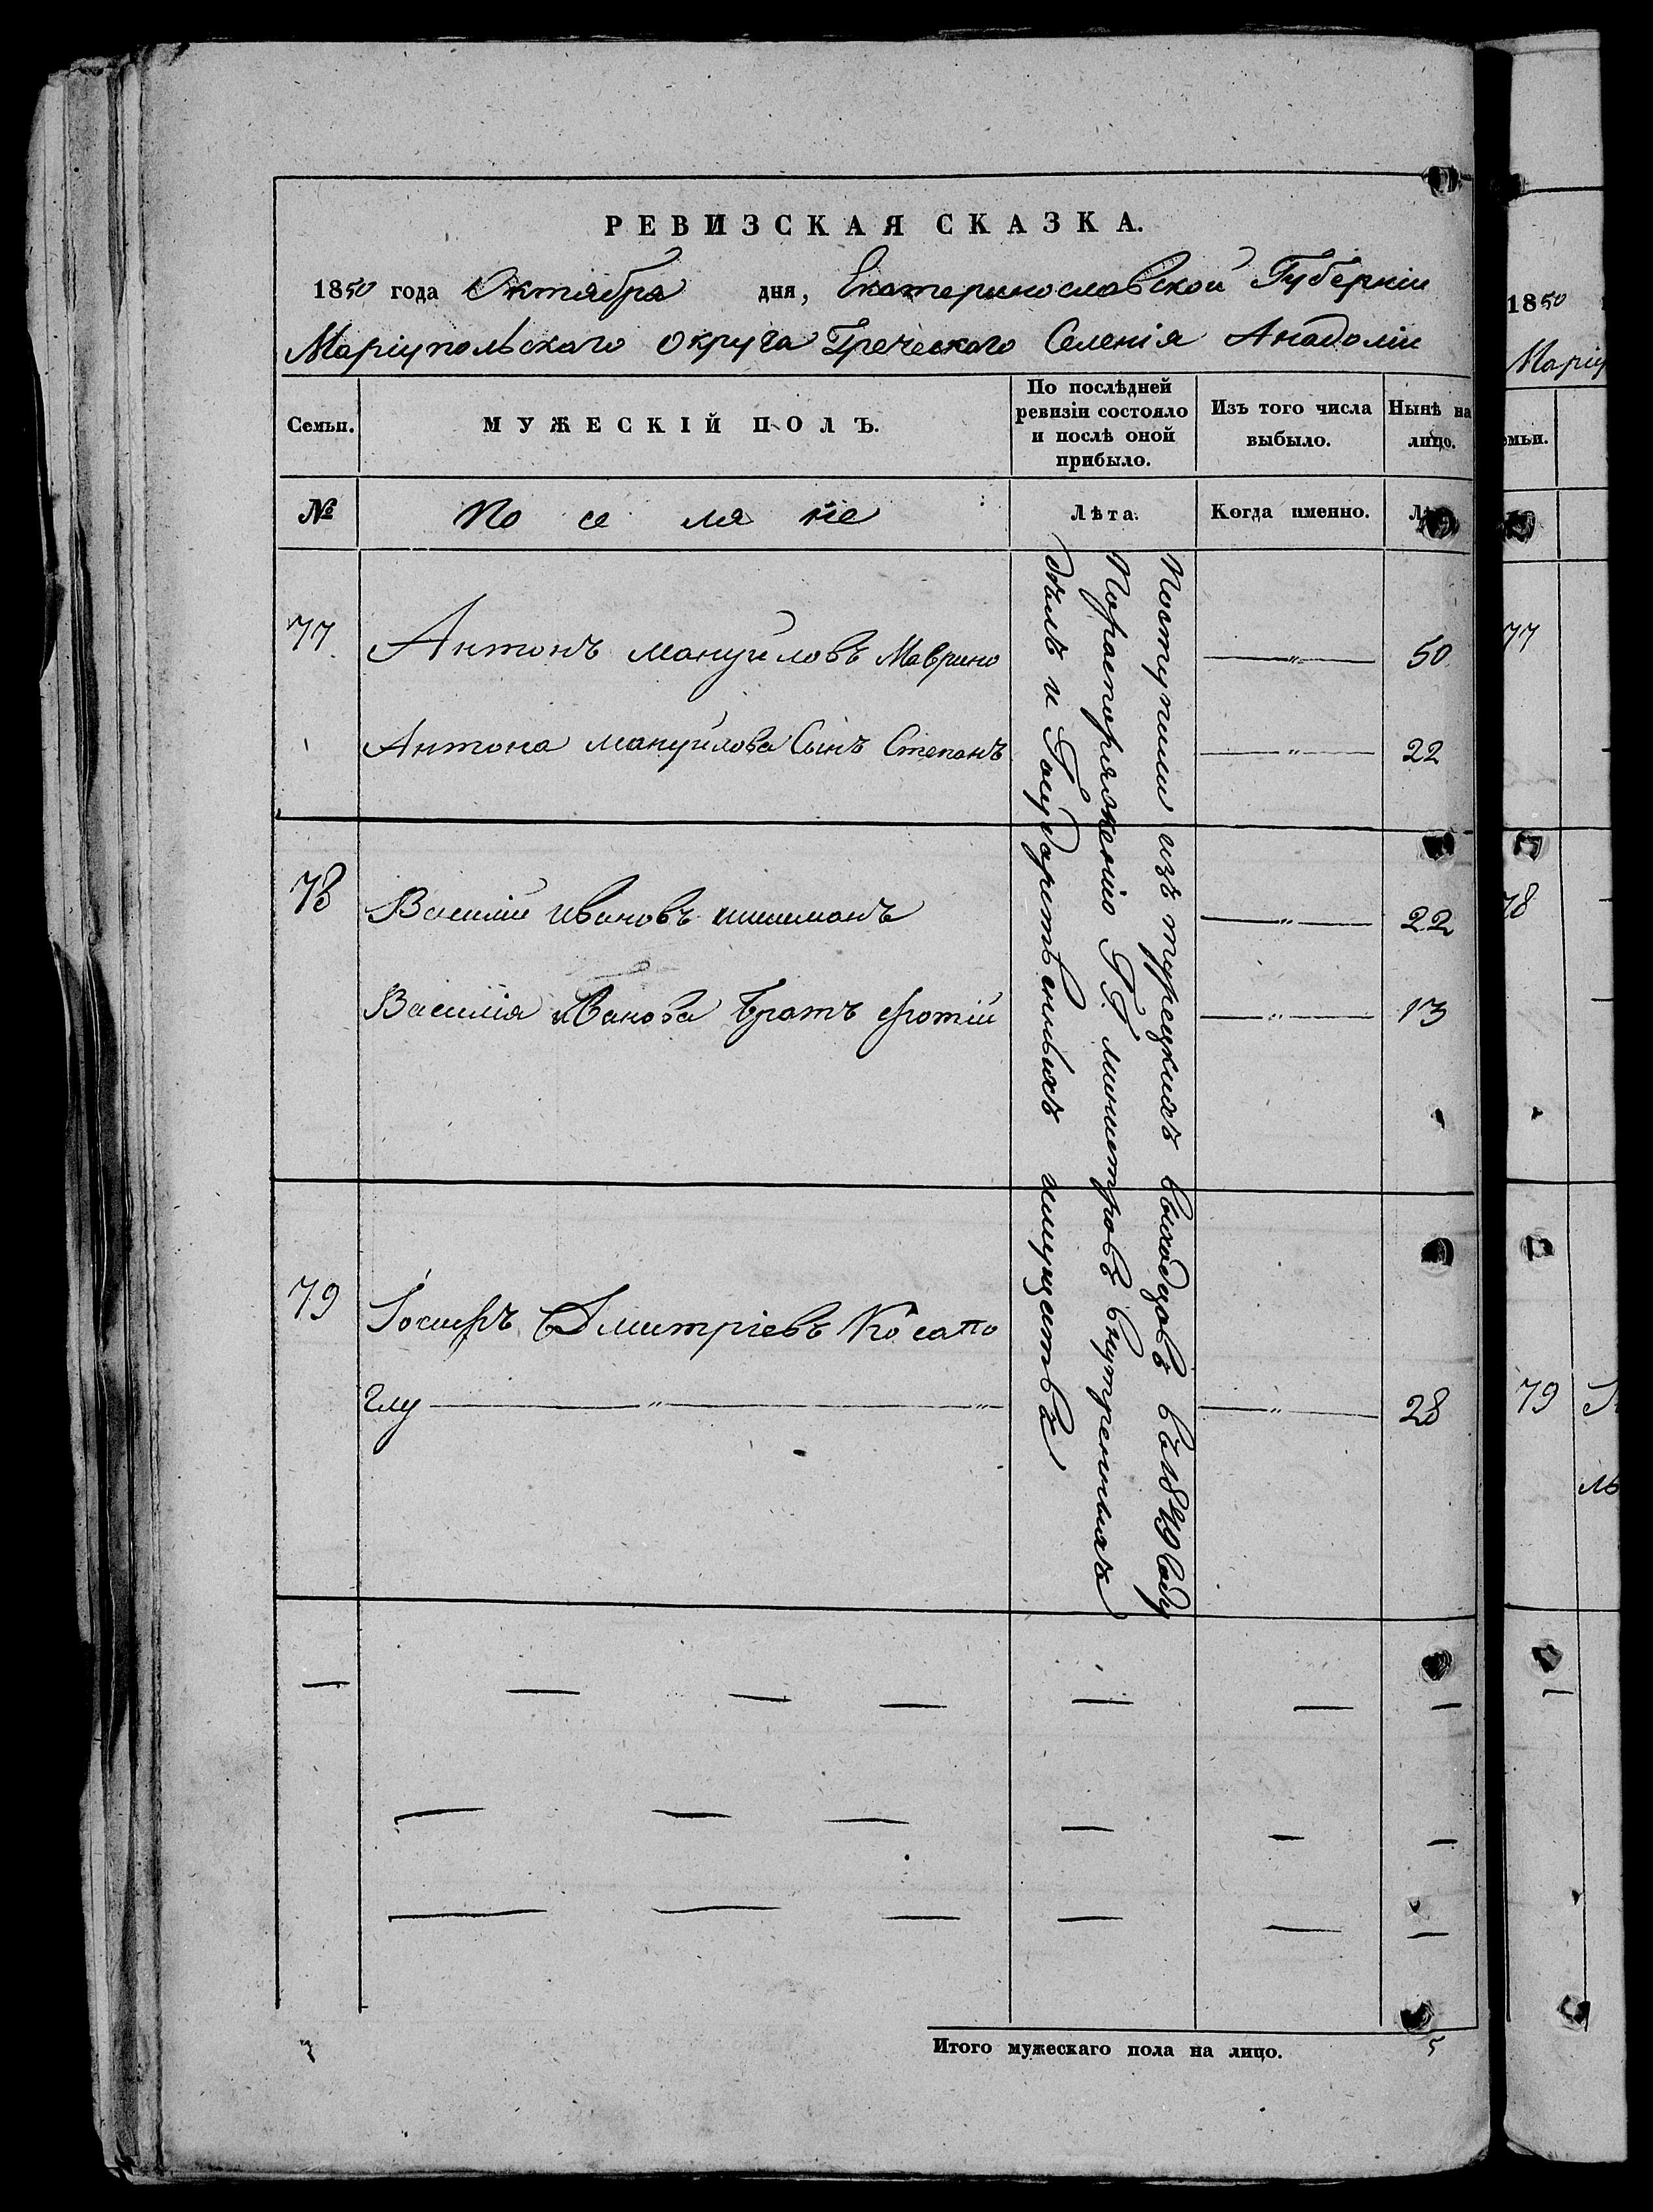 РЕВИЗСКАЯ СКАЗКА.
1850 года Октября дня, Екатеринославской Губерніи
Маріупольскаго округа Греческаго Селенія Анадоліи
Семьи.
МУЖЕСКІЙ ПОЛЪ.
По послѣдней
ревизіи состояло
и послѣ оной
прибыло.
Изъ того числа
выбыло.
Нынѣ на
лицо.
№
Поселяне
Лѣта.
Когда именно.
Поступили изъ турецкихъ выходцовъ въ 1849 году
По распоряженію Г.Г. министровъ внутреннихъ
дѣлъ и Государственныхъ имуществъ
77
Антонъ мануиловъ Маврино
— " — 50
Антона мануилова Сынъ Степанъ
— " — 22
78
Василій ивановъ шишманъ
— " — 22
Василія иванова братъ Фотій
— " — 13
79
Іосифъ Дмитріевъ Косапо
глу — " — " — " — 28
Итого мужескаго пола на лицо. 5
1850
Маріу
емьи.
77
78
79